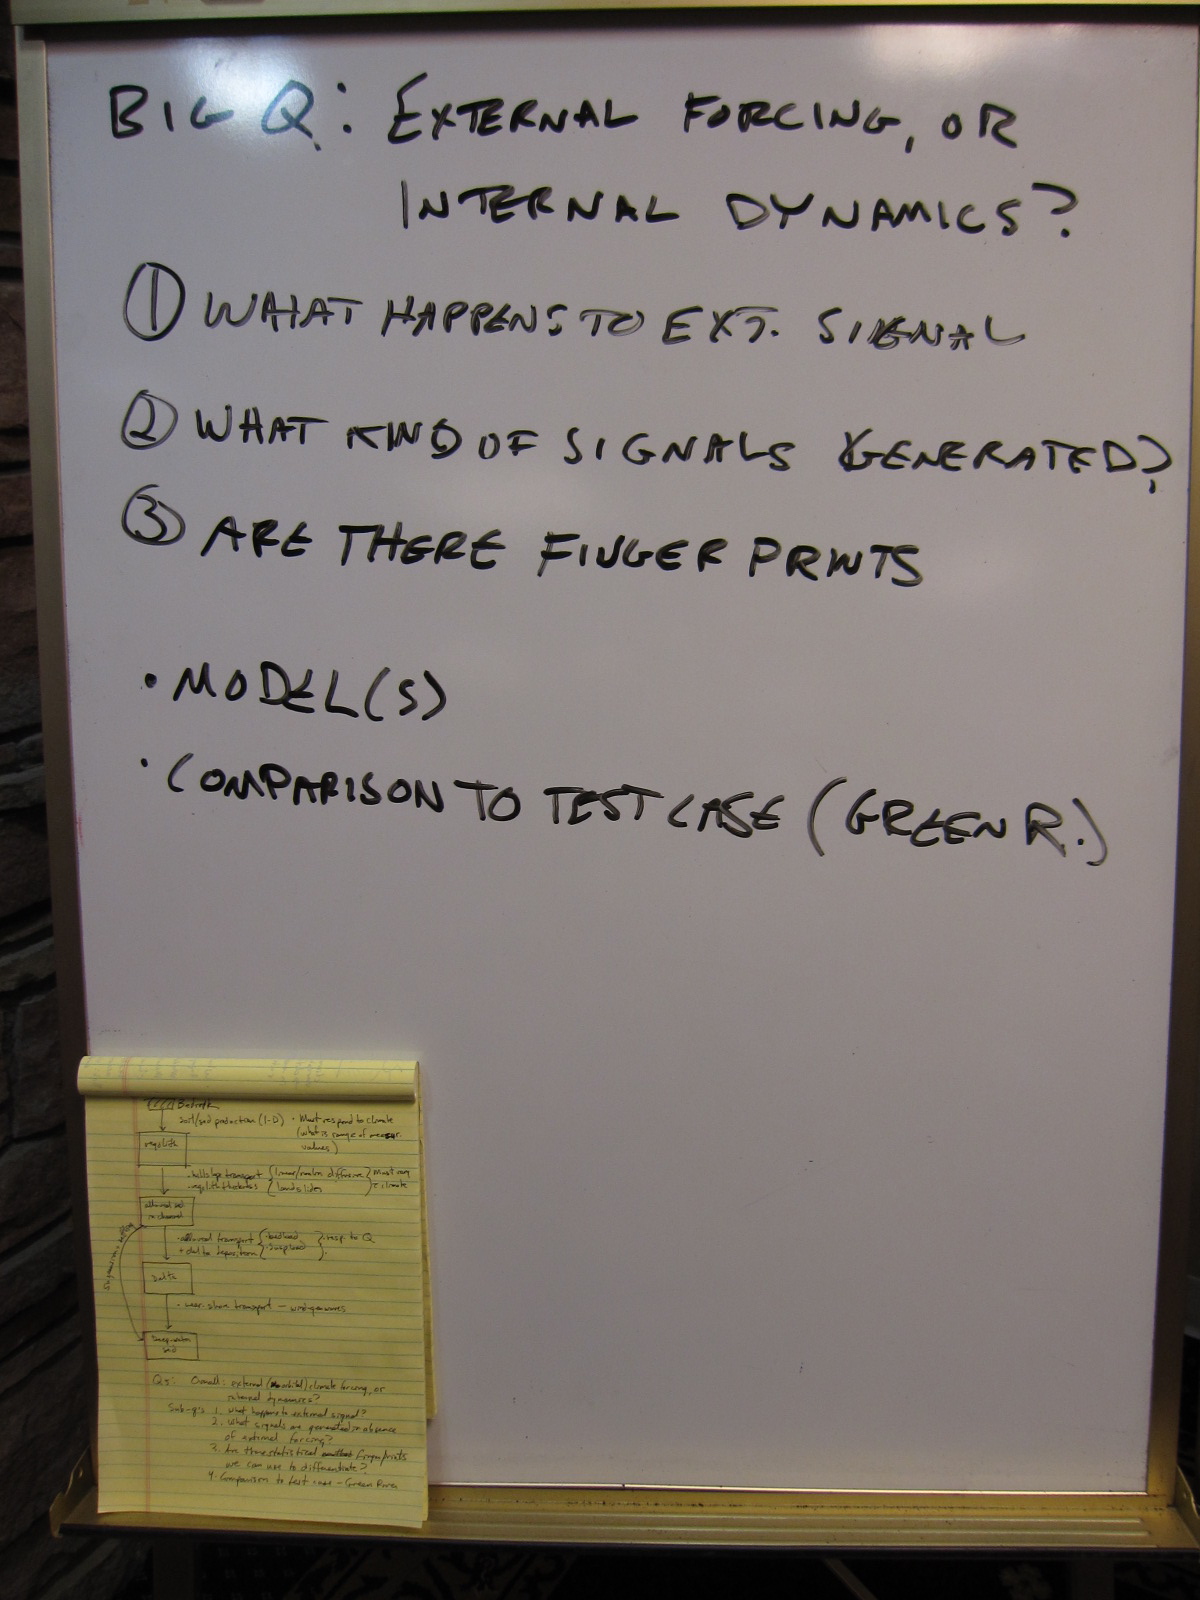 BIG Q: EXTERNAL FORCING, OR
INTERNAL DYNAMICS?
① WHAT HAPPENS TO EXT. SIGNAL
② WHAT KIND OF SIGNALS GENERATED?
③ ARE THERE FINGER PRINTS
• MODEL(S)
• COMPARISON TO TEST CASE (GREEN R.)
Bedrock
soil/sed production (1-D) • Must respond to climate
(what is range of measur.
values)
regolith
• hillslope transport { linear/nonlin diffusive } must resp
• regolith thickness { landslides } climate
alluvial sed
in channel
• alluvial transport { • bedload } resp. to Q
+ delta deposition { • susp load }
Delta
• near-shore transport — waves
Deep-water
sed
Qs: Overall: external (orbital) climate forcing, or
internal dynamics?
Sub-q's 1. What happens to external signal?
2. What signals are generated in absence
of external forcing?
3. Are there statistical fingerprints
we can use to differentiate?
4. Comparison to test case - Green River